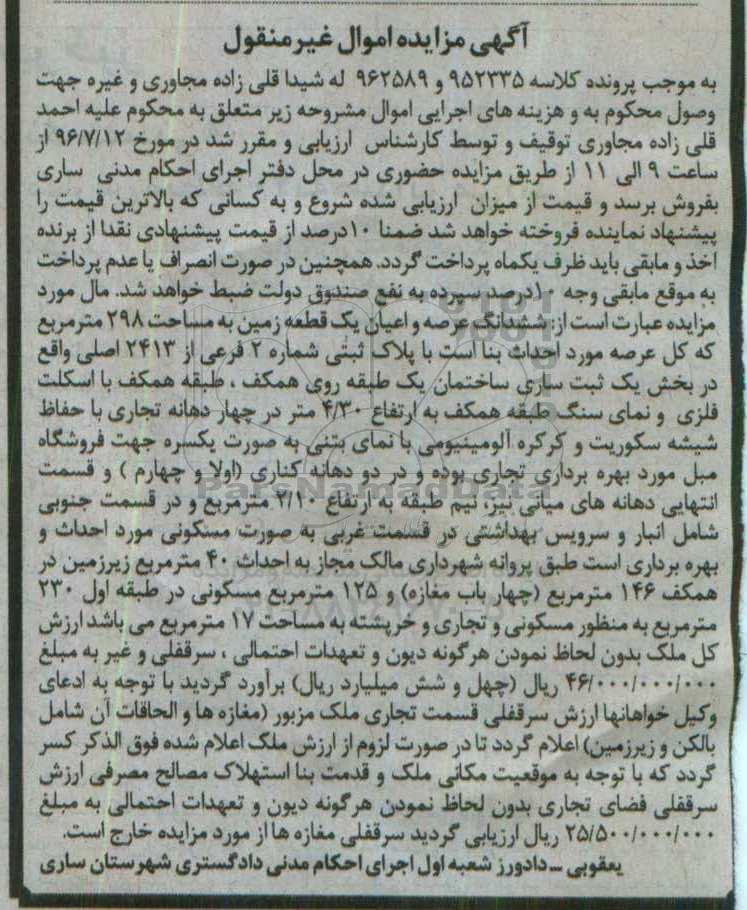 آگهی مزایده اموال غیرمنقول
به موجب پرونده کلاسه ۹۵۲۳۳۵ و ۹۶۲۵۸۹ له شیدا قلی زاده مجاوری و غیره جهت
وصول محکوم به و هزینه های اجرایی اموال مشروحه زیر متعلق به محکوم علیه احمد
قلی زاده مجاوری توقیف و توسط کارشناس ارزیابی و مقرر شد در مورخ ۹۶/۷/۱۲ از
ساعت ۹ الی ۱۱ از طریق مزایده حضوری در محل دفتر اجرای احکام مدنی ساری
بفروش برسد و قیمت از میزان ارزیابی شده شروع و به کسانی که بالاترین قیمت را
پیشنهاد نماینده فروخته خواهد شد ضمنا ۱۰درصد از قیمت پیشنهادی نقدا از برنده
اخذ و مابقی باید ظرف یکماه پرداخت گردد. همچنین در صورت انصراف یا عدم پرداخت
به موقع مابقی وجه ۱۰درصد سپرده به نفع صندوق دولت ضبط خواهد شد. مال مورد
مزایده عبارت است از: ششدانگ عرصه و اعیان یک قطعه زمین به مساحت ۲۹۸ مترمربع
که کل عرصه مورد احداث بنا است با پلاک ثبتی شماره ۲ فرعی از ۲۴۱۳ اصلی واقع
در بخش یک ثبت ساری ساختمان یک طبقه روی همکف ، طبقه همکف با اسکلت
فلزی و نمای سنگ طبقه همکف به ارتفاع ۴/۳۰ متر در چهار دهانه تجاری با حفاظ
شیشه سکوریت و کرکره آلومینیومی با نمای بتنی به صورت یکسره جهت فروشگاه
مبل مورد بهره برداری تجاری بوده و در دو دهانه کناری (اولا و چهارم ) و قسمت
انتهایی دهانه های میانی نیز، نیم طبقه به ارتفاع ۲/۱۰ مترمربع و در قسمت جنوبی
شامل انبار و سرویس بهداشتی در قسمت غربی به صورت مسکونی مورد احداث و
بهره برداری است طبق پروانه شهرداری مالک مجاز به احداث ۴۰ مترمربع زیرزمین در
همکف ۱۴۶ مترمربع (چهار باب مغازه) و ۱۲۵ مترمربع مسکونی در طبقه اول ۲۳۰
مترمربع به منظور مسکونی و تجاری و خرپشته به مساحت ۱۷ مترمربع می باشد ارزش
کل ملک بدون لحاظ نمودن هرگونه دیون و تعهدات احتمالی ، سرقفلی و غیر به مبلغ
۴۶/۰۰۰/۰۰۰/۰۰۰ ریال (چهل و شش میلیارد ریال) برآورد گردید با توجه به ادعای
وکیل خواهانها ارزش سرقفلی قسمت تجاری ملک مزبور (مغازه ها و الحاقات آن شامل
بالکن و زیرزمین) اعلام گردد تا در صورت لزوم از ارزش ملک اعلام شده فوق الذکر کسر
گردد که با توجه به موقعیت مکانی ملک و قدمت بنا استهلاک مصالح مصرفی ارزش
سرقفلی فضای تجاری بدون لحاظ نمودن هرگونه دیون و تعهدات احتمالی به مبلغ
۲۵/۵۰۰/۰۰۰/۰۰۰ ریال ارزیابی گردید سرقفلی مغازه ها از مورد مزایده خارج است.
یعقوبی – دادورز شعبه اول اجرای احکام مدنی دادگستری شهرستان ساری
ParsNamadData